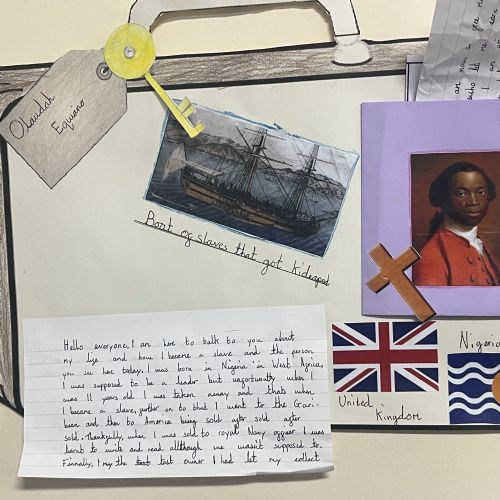 Olaudah
Equiano
Boat of slaves that got kidnaped
Hello everyone, I am here to talk to you about
my life and how I became a slave and the person
you see here today. I was born in Nigeria in West Africa,
I was supposed to be a leader but unfortunatly when I
was 11 years old I was taken away and thats when
I became a slave, further on to that I went to the Cari-
bean and then to America being sold after sold after
sold. Thankgully, when I was sold to royal Navy officer I was
learnt to write and read allthough we wasn't supposed to.
Finnally, my the last owner I had let my collect
United
Kingdom
Nigeria